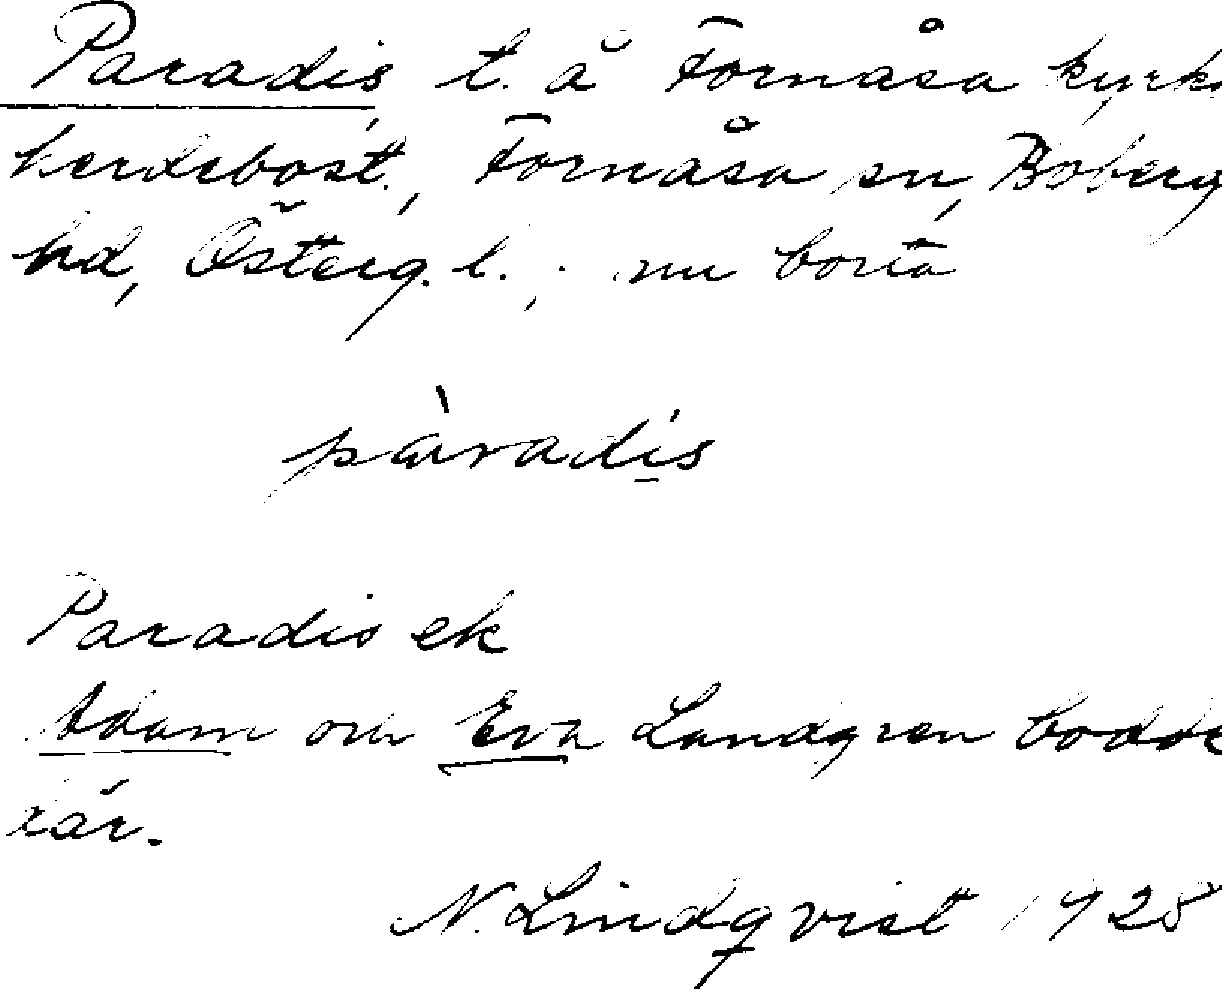 Paradis, t. å Fornåsa kyrko
herdebost., Fornåsa sn, Boberg
hd, Österg. l.; nu borta
pàradis
Paradis ek
Adam och Eva Landgren bodde
där.
N. Lindqvist 1928